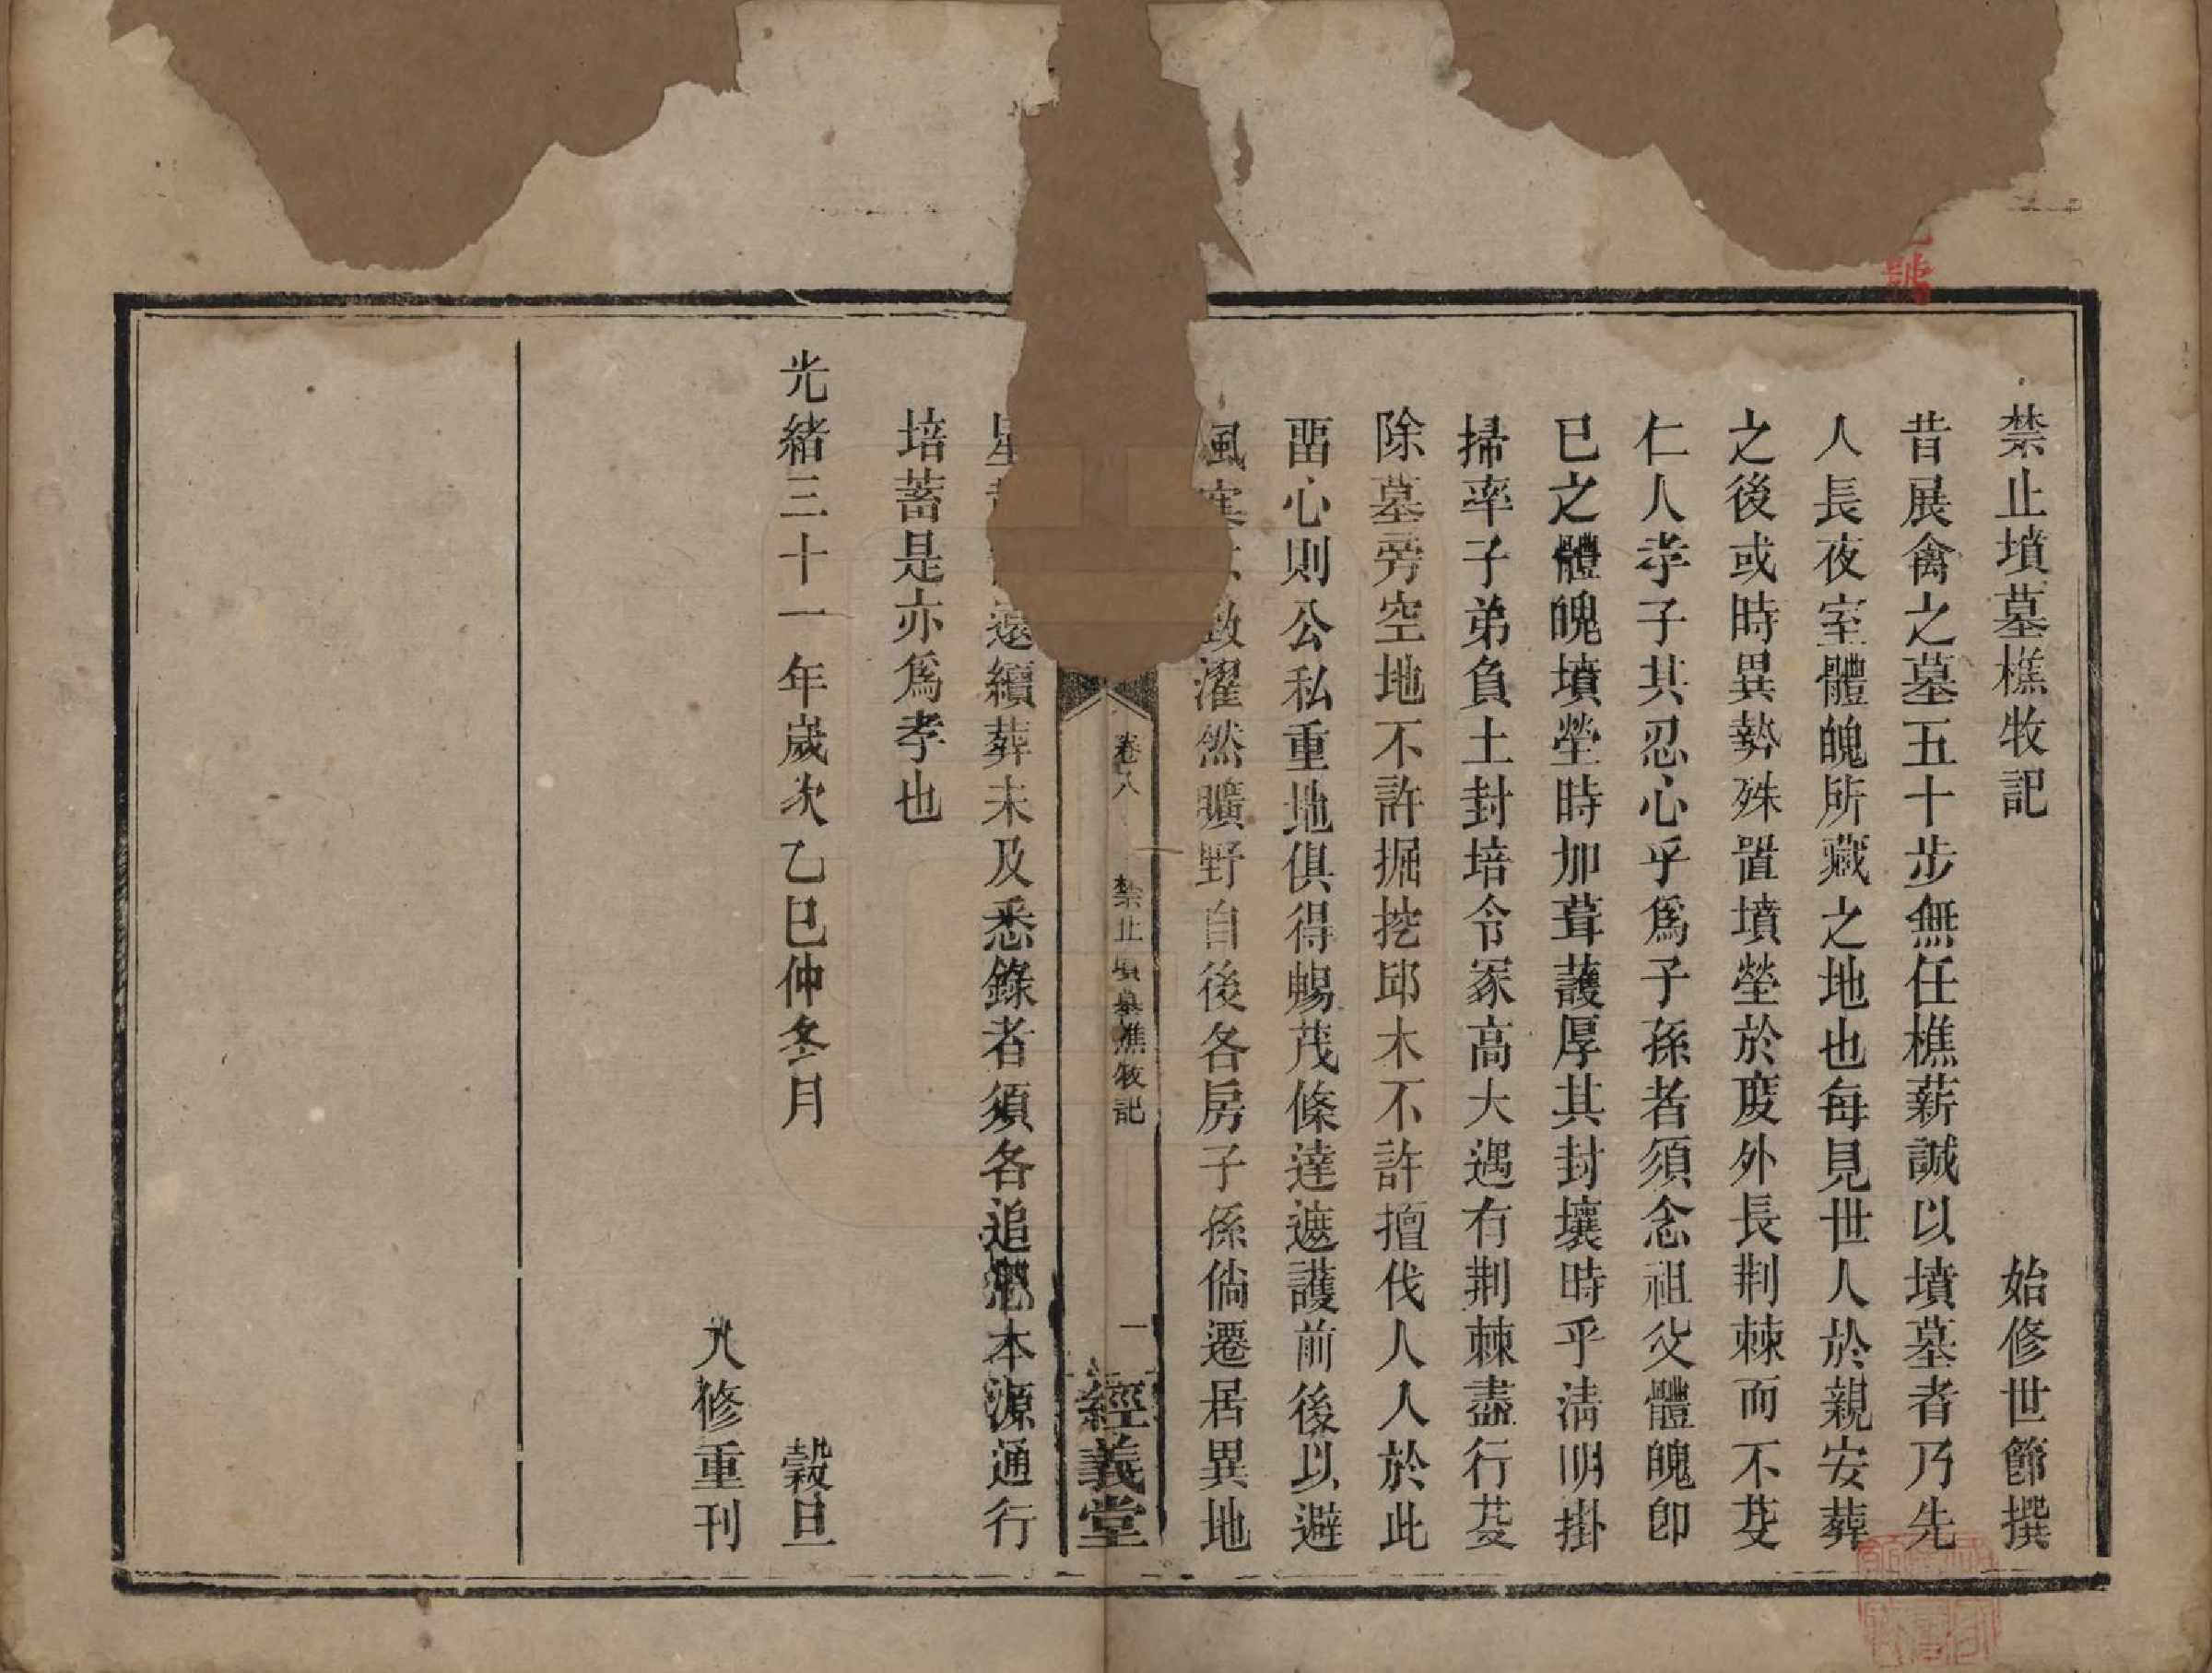 禁止墳墓樵牧記　始修世節撰
昔展禽之墓五十步無任樵薪誠以墳墓者乃先
人長夜室體魄所藏之地也每見世人於親安葬
之後或時異勢殊置墳塋於度外長荆棘而不芟
仁人孝子其忍心乎爲子孫者須念祖父體魄卽
已之體魄墳塋時加葺護厚其封壤時乎淸明掛
掃率子弟負土封培令冢高大遇有荆棘盡行芟
除墓旁空地不許掘挖邱木不許擅伐人人於此
畱心則公私重地俱得暢茂條達遮護前後以避
風 致濯然曠野自後各房子孫倘遷居異地
卷八　禁止墳墓樵牧記　一　經義堂
遠續葬未及悉錄者須各追 本源通行
培蓄是亦爲孝也
光緒三十一年歲次乙巳仲冬月　穀旦
八修重刊